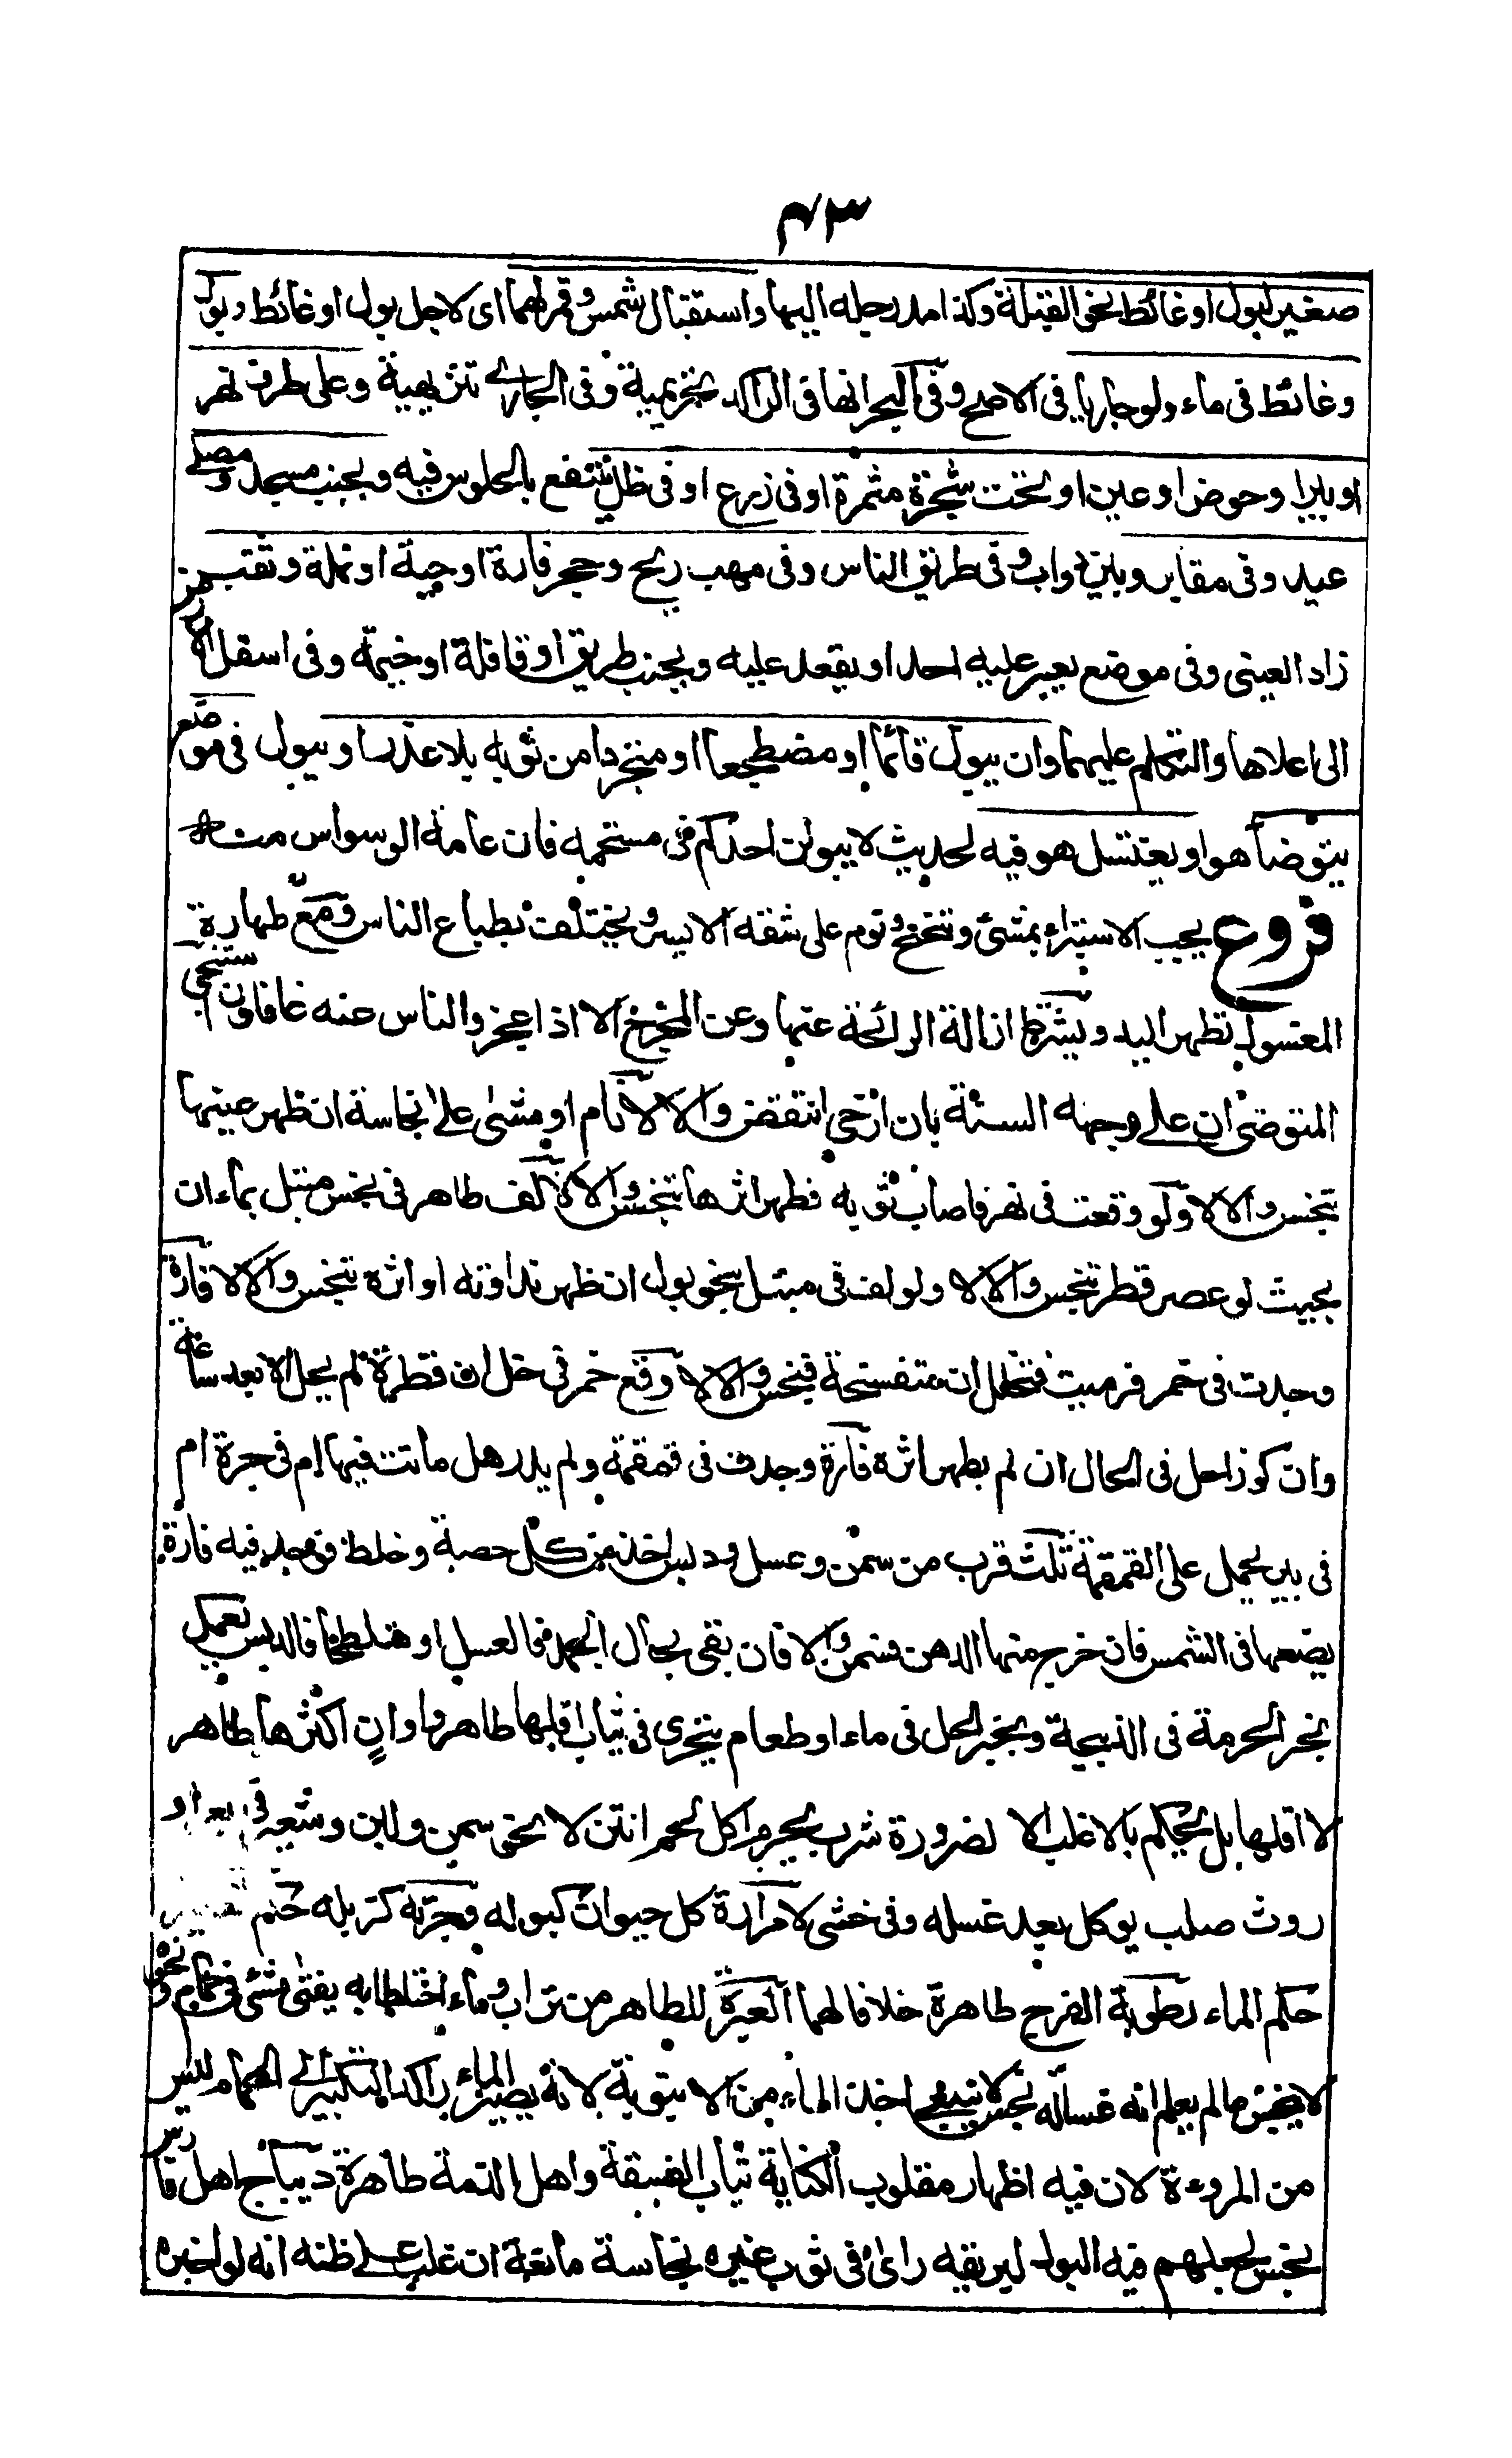 ٤٣
صغير لبول او غائط نحو القبلة وكذا مد رجله اليها واستقبال شمس وقمر لهما اى لاجل بول او غائط وبول
وغائط فى ماء ولو جاريا فى الاصح وفى البحر انها فى الراكد تحريمية وفى الجارے تنزيهية وعلى طرف نهر
او بير او حوض او عين او تحت شجرة مثمرة او فى زرع او فى ظل ينتفع بالجلوس فيه وبجنب مسجد ومصلے
عيد وفى مقابر وبين دواب وفى طريق الناس وفى مهب ريح وجحر فارة او حية او نملة وثقب
زاد العينى وفى موضع يعبر عليه احد او يقعد عليه وبجنب طريق او قافلة او خيمة وفى اسفل الارض
الى اعلاها والتكلم عليهما وان يبول قائما او مضطجعا او متجردا من ثوبه بلا عذر او يبول فى موضع
يتوضأ هو او يغتسل هو فيه لحديث لا يبولن احدكم فى مستحمه فان عامة الوسواس منه
فروع يجب الاستبراء بمشى وتنحنح ونوم على شقه الايسر ويختلف بطباع الناس ومع طهارة
المغسول تطهر اليد ويشترط ازالة الرائحة عنها وعن المخرج الا اذا عجز والناس عنه غافلون استنجى
المتوضى ان على وجه السنة بان ارخى انتقض والا لا نام او مشى على نجاسة ان ظهر عينها
تنجس والا لا ولو وقعت فى نهر فاصاب ثوبه فظهر اثرها تنجس والا لا لف طاهر فى نجس مبتل بماء ان
بحيث لو عصر قطر تنجس والا لا ولو لف فى مبتل بنحو بول ان ظهر نداوته او اثره تنجس والا لا فارة
وجدت فى خمر فرميت فتخلل ان متفسخة فنجس والا لا وقع خمر فى خل ان قطرة لم يحل الا بعد ساعة
وان كوزا حل فى الحال ان لم يظهر اثره فارة وجدت فى قمقمة ولم يدر هل ماتت فيها ام فى جرة ام
فى بير يحمل على القمقمة ثلث قرب من سمن وعسل ودبس اخذ من كل حصة وخلط فوجد فيه فارة
يضعها فى الشمس فان خرج منها الدهن فسمن والا فان بقى بحال الجمد فالعسل او متلطخا فالدبس يعمل
بخبر الحرمة فى الذبيحة وبخبر الحل فى ماء او طعام يتحرى فى ثياب اقلها طاهر واوان اكثرها طاهر
لا اقلها بل يحكم بالاغلب الا لضرورة شرب يحرم اكل لحم انتن لا نحو سمن ولبن وشعير فى
روث صلب يوكل بعد غسله وفى خثى لا مرارة كل حيوان كبوله وجرته كزبله حكم
حكم الماء رطوبة الفرج طاهرة خلافا لهما العبرة للطاهر من تراب وماء اختلطا به يفتى مشى فى حمام ونحوه
لا ينجس ما لم يعلم انه غسالة نجس لا ينبغى اخذ الماء من الانبوبة لانه يصير الماء راكدا التكبير الى الحمام ليس
من المروءة لان فيه اظهار مقلوب الكناية ثياب الفسقة واهل الذمة طاهرة ديباج اهل فارس
نجس لجعلهم فيه البول لبريقه راى فى ثوب غيره نجاسة مانعة ان غلب على ظنه انه لو اخبره